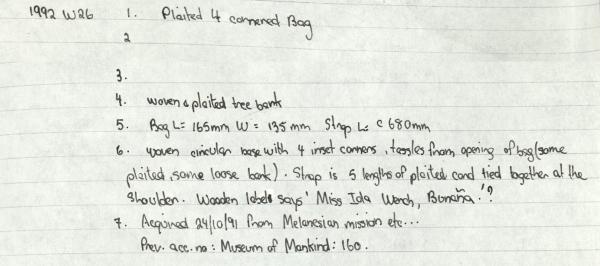 1992 W26 1. Plaited 4 cornered Bag
2
3.
4. woven & plaited tree bark
5. Bag L= 165mm W= 135mm Strap L= c 680mm
6. woven circular base with 4 inset corners, tassles from opening of bag (some
plaited, some loose bark). Strap is 5 lengths of plaited cord tied together at the
shoulder. Wooden label says 'Miss Ida Wench, Bunana'?
7. Acquired 24/10/91 from Melanesian mission etc...
Prev. acc. no: Museum of Mankind: 160.